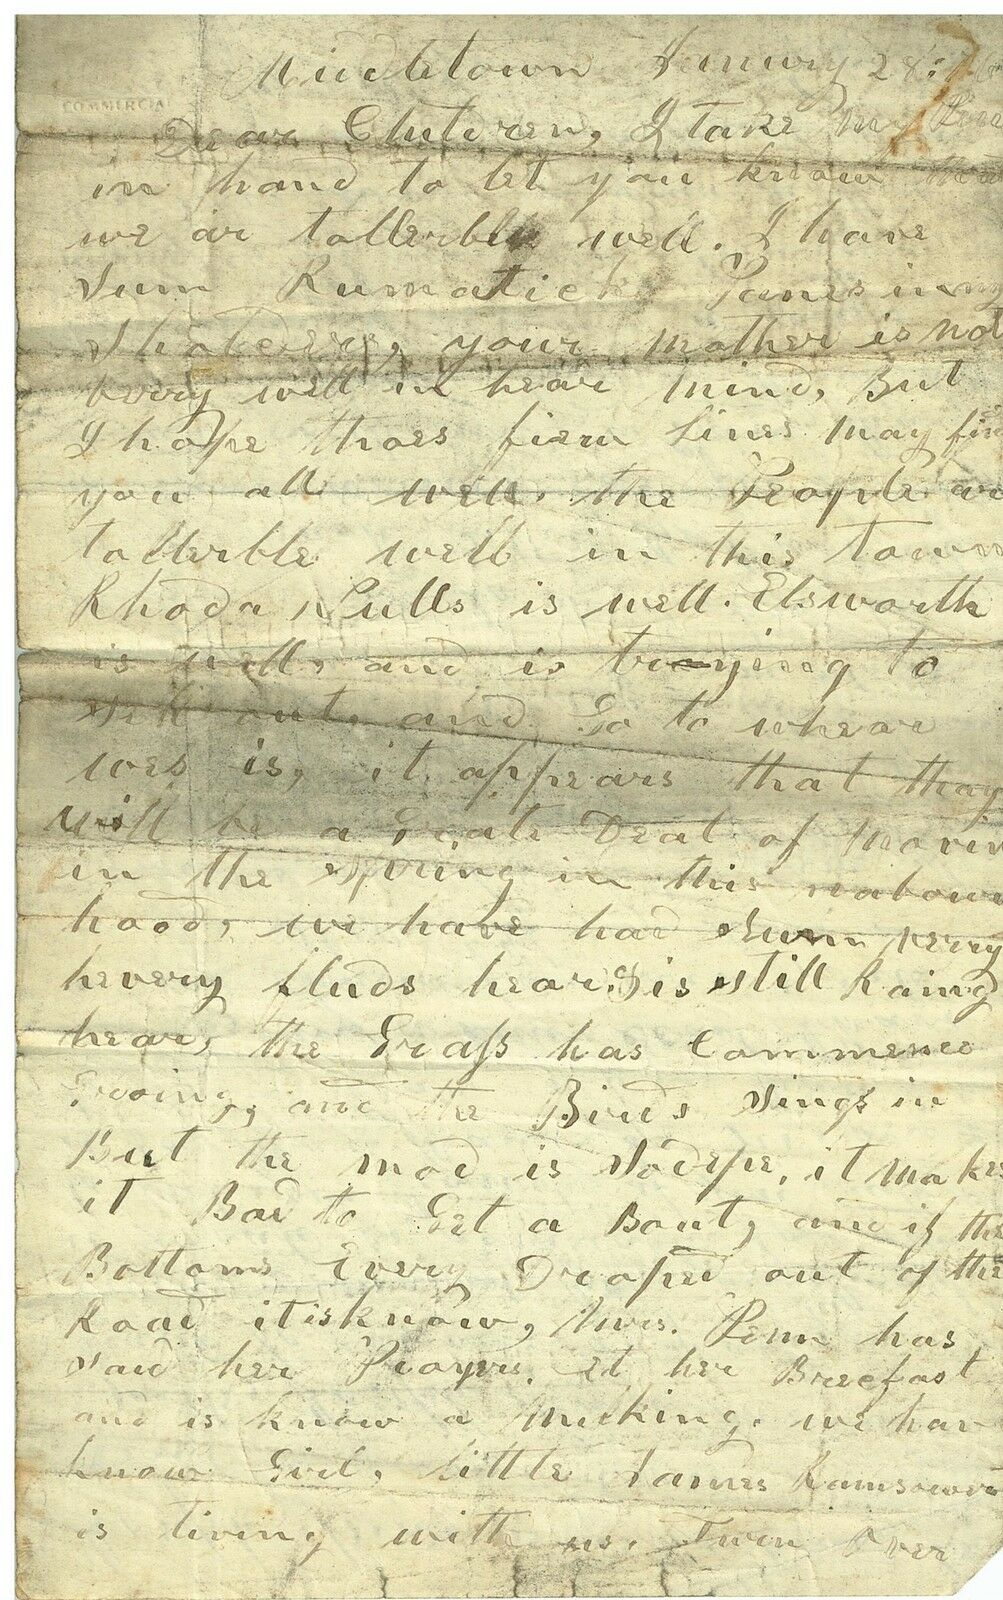 COMMERCIAL
Middletown Janury 28
Dear Children, I take my Pen
in hand to let you know that
we ar tollerble well. I have
sum Rumatick Panes in my
Sholders, your mother is not
very well in hear mind, But
I hope thoes fiew lines may find
you all well. the People ar
tollerble well in this town
Rhoda is well. Elsworth
is well, and is trying to
Sell out, and Go to whear
wes is, it appears that thay
will be a Grate Deal of movin
in the Spring in this nabour
hood, we have had Sum verry
hevery fluds hear. is still Raing
hear, the Grass has Commence
Grooing, and the Birds Sings in
But the mod is So depe, it makes
it Bad to Get a Bout, and if the
Bottoms Every Droped out of the
Road it is know, Mrs. Penn has
Said her Prayers, et her Brecfast
and is know a Milking. we hav
know Girl, little James
is living with us. Turn Over